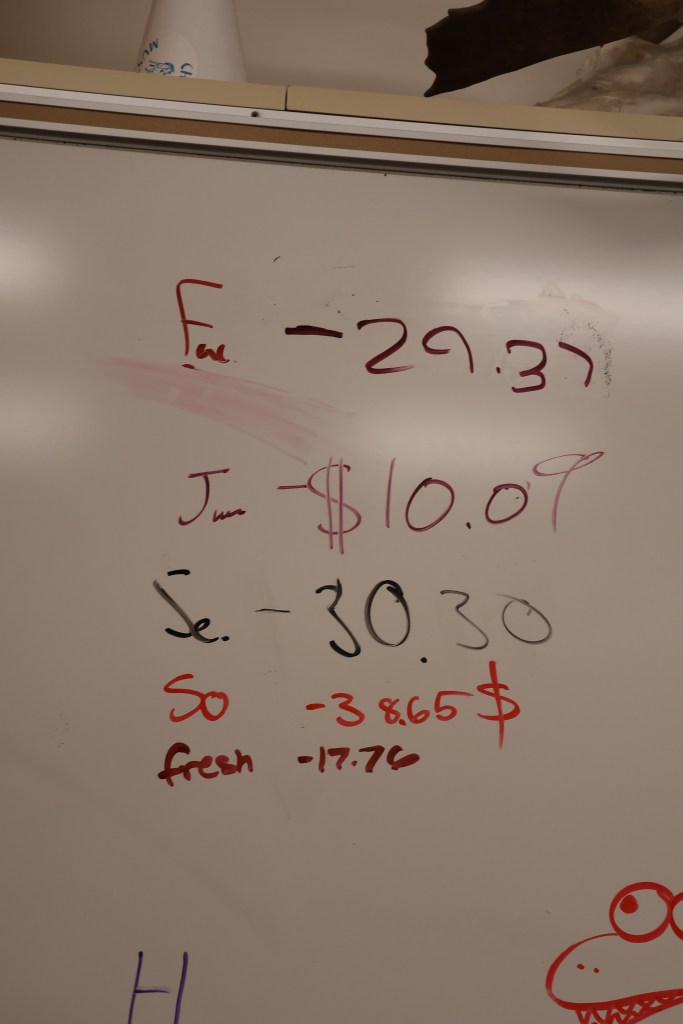 Fac. -29.37
Jun -$10.09
Se. -30.30
So -38.65$
fresh -17.76
H